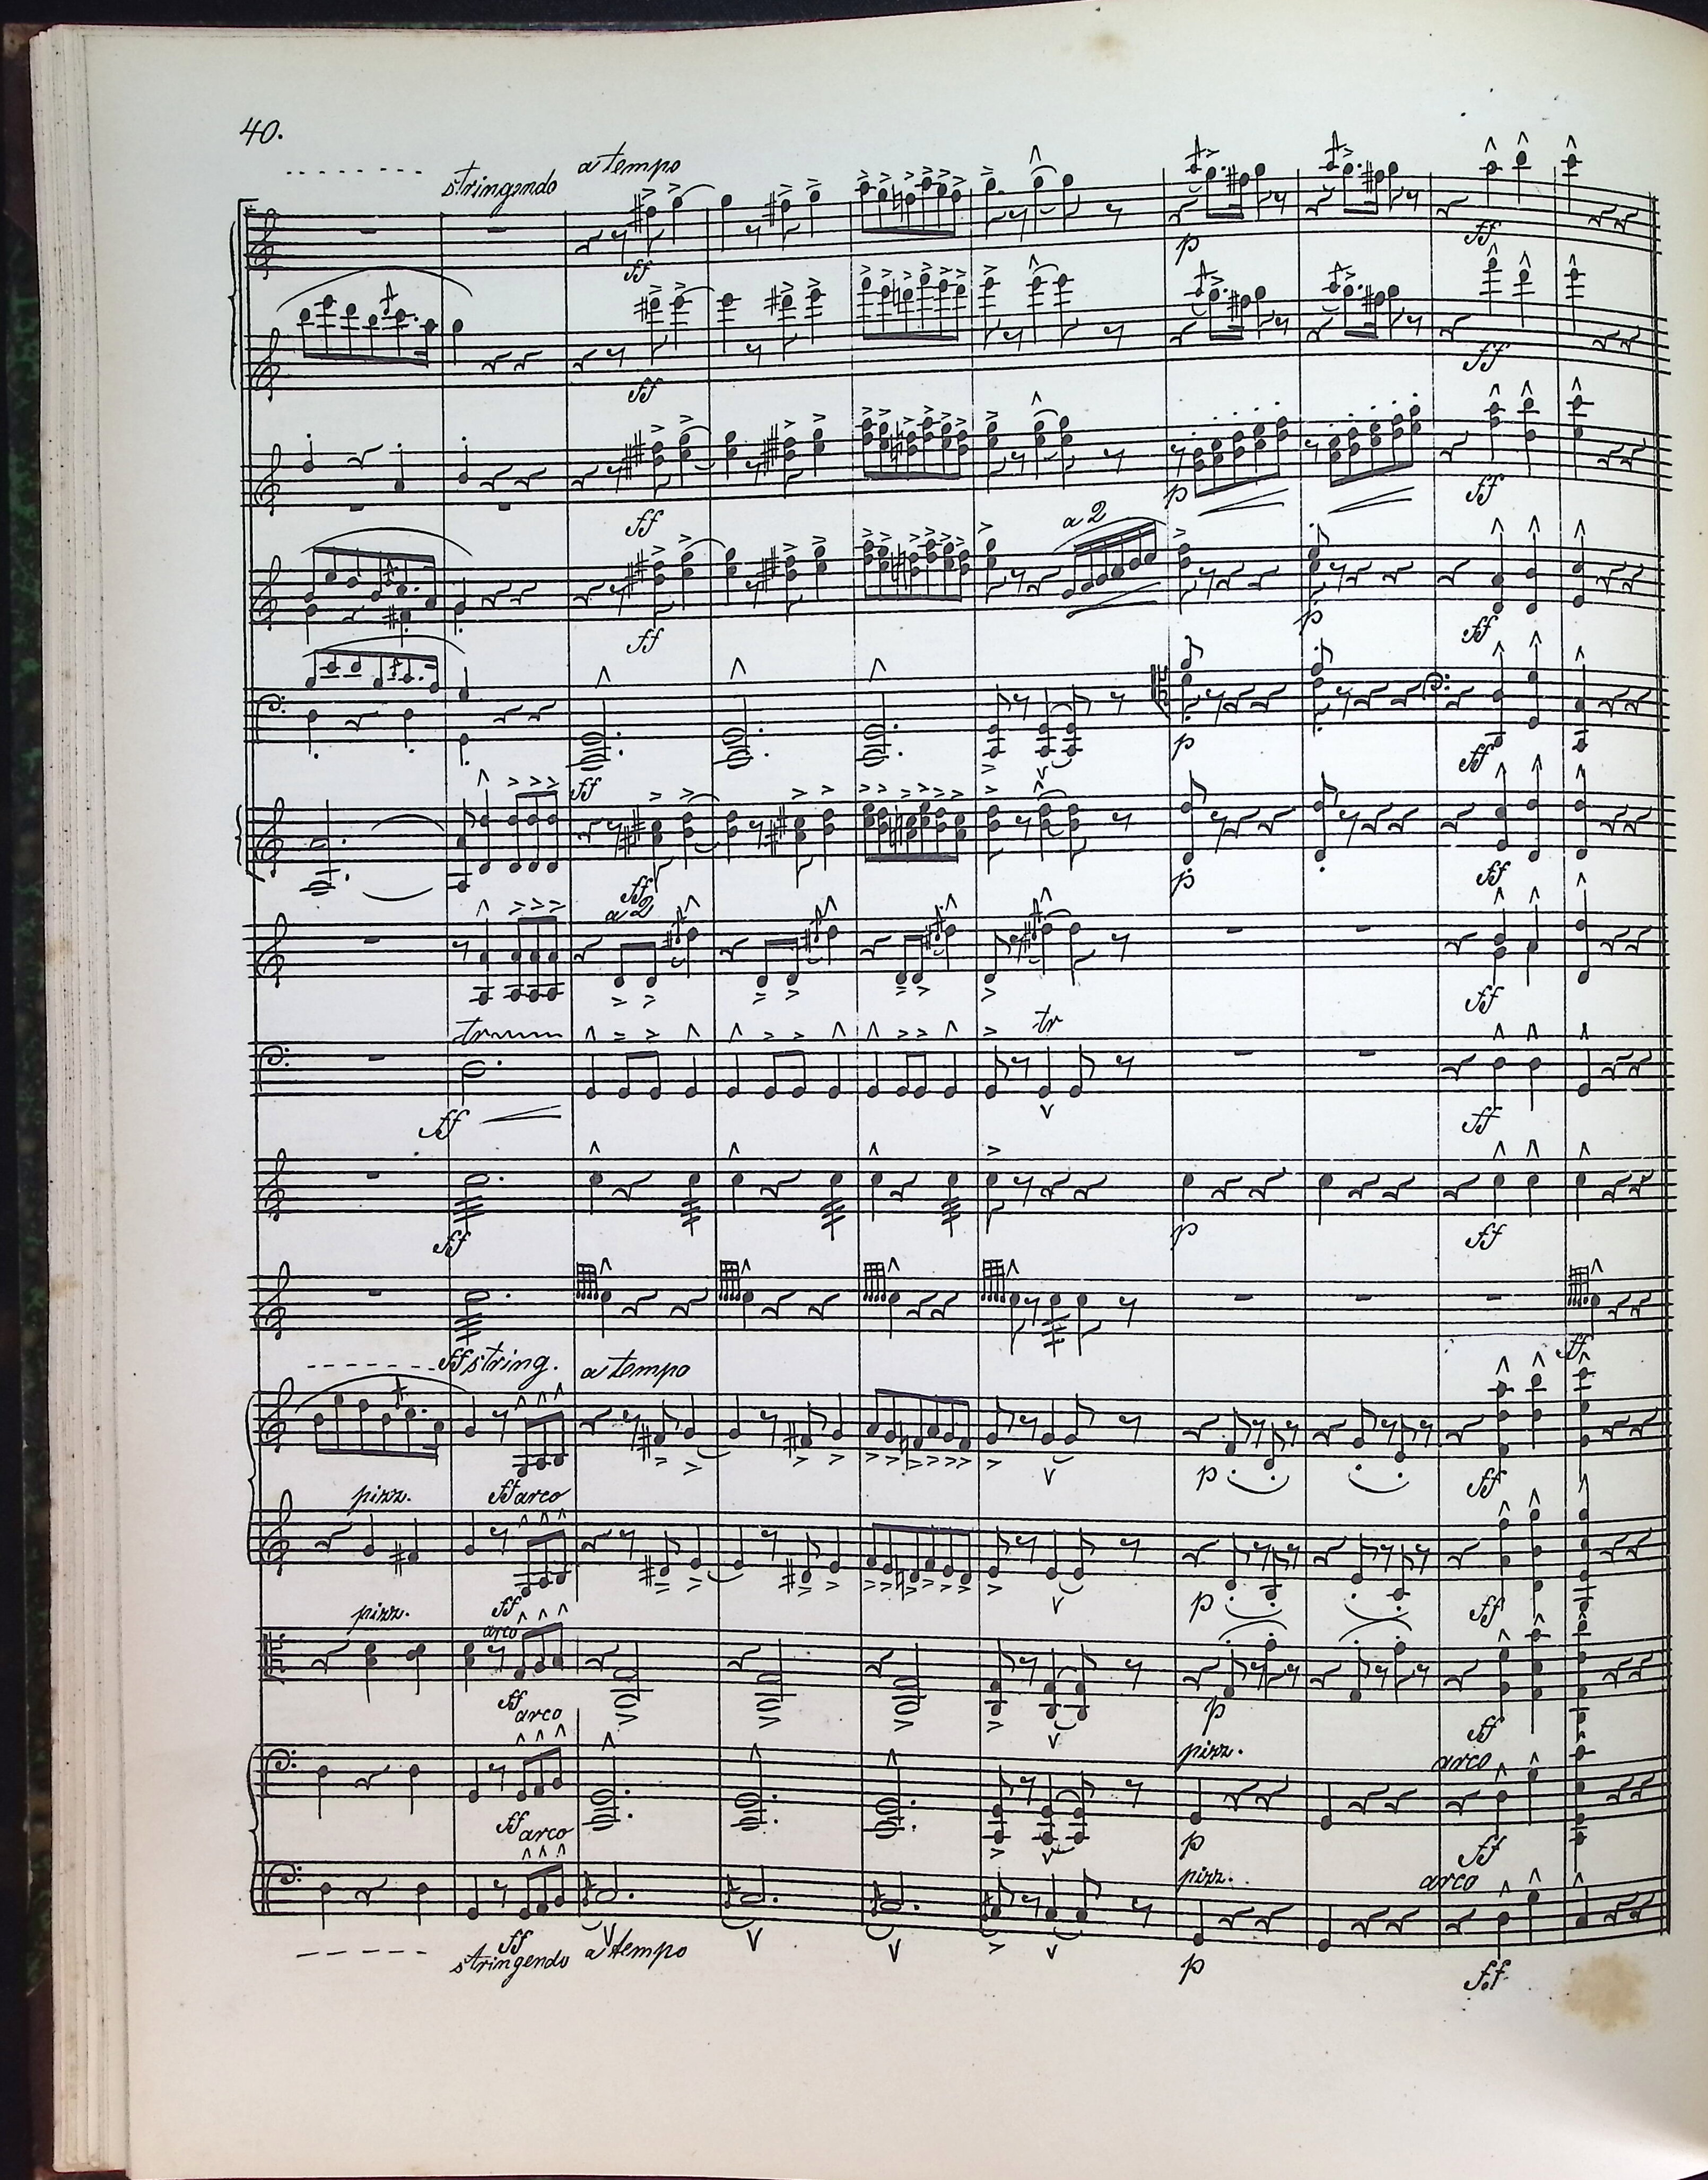 40.
stringendo a tempo
ff p p ff
ff ff
ff p ff
a 2
ff p ff
p ff
ff
ff p ff
a 2
ff
tr tr
ff ff
ff p ff
ff
ff string. a tempo
p ff
pizz. ff arco
p ff
pizz. ff arco
p ff
ff arco pizz. arco
p ff
ff arco pizz. arco
ff p ff
stringendo a tempo